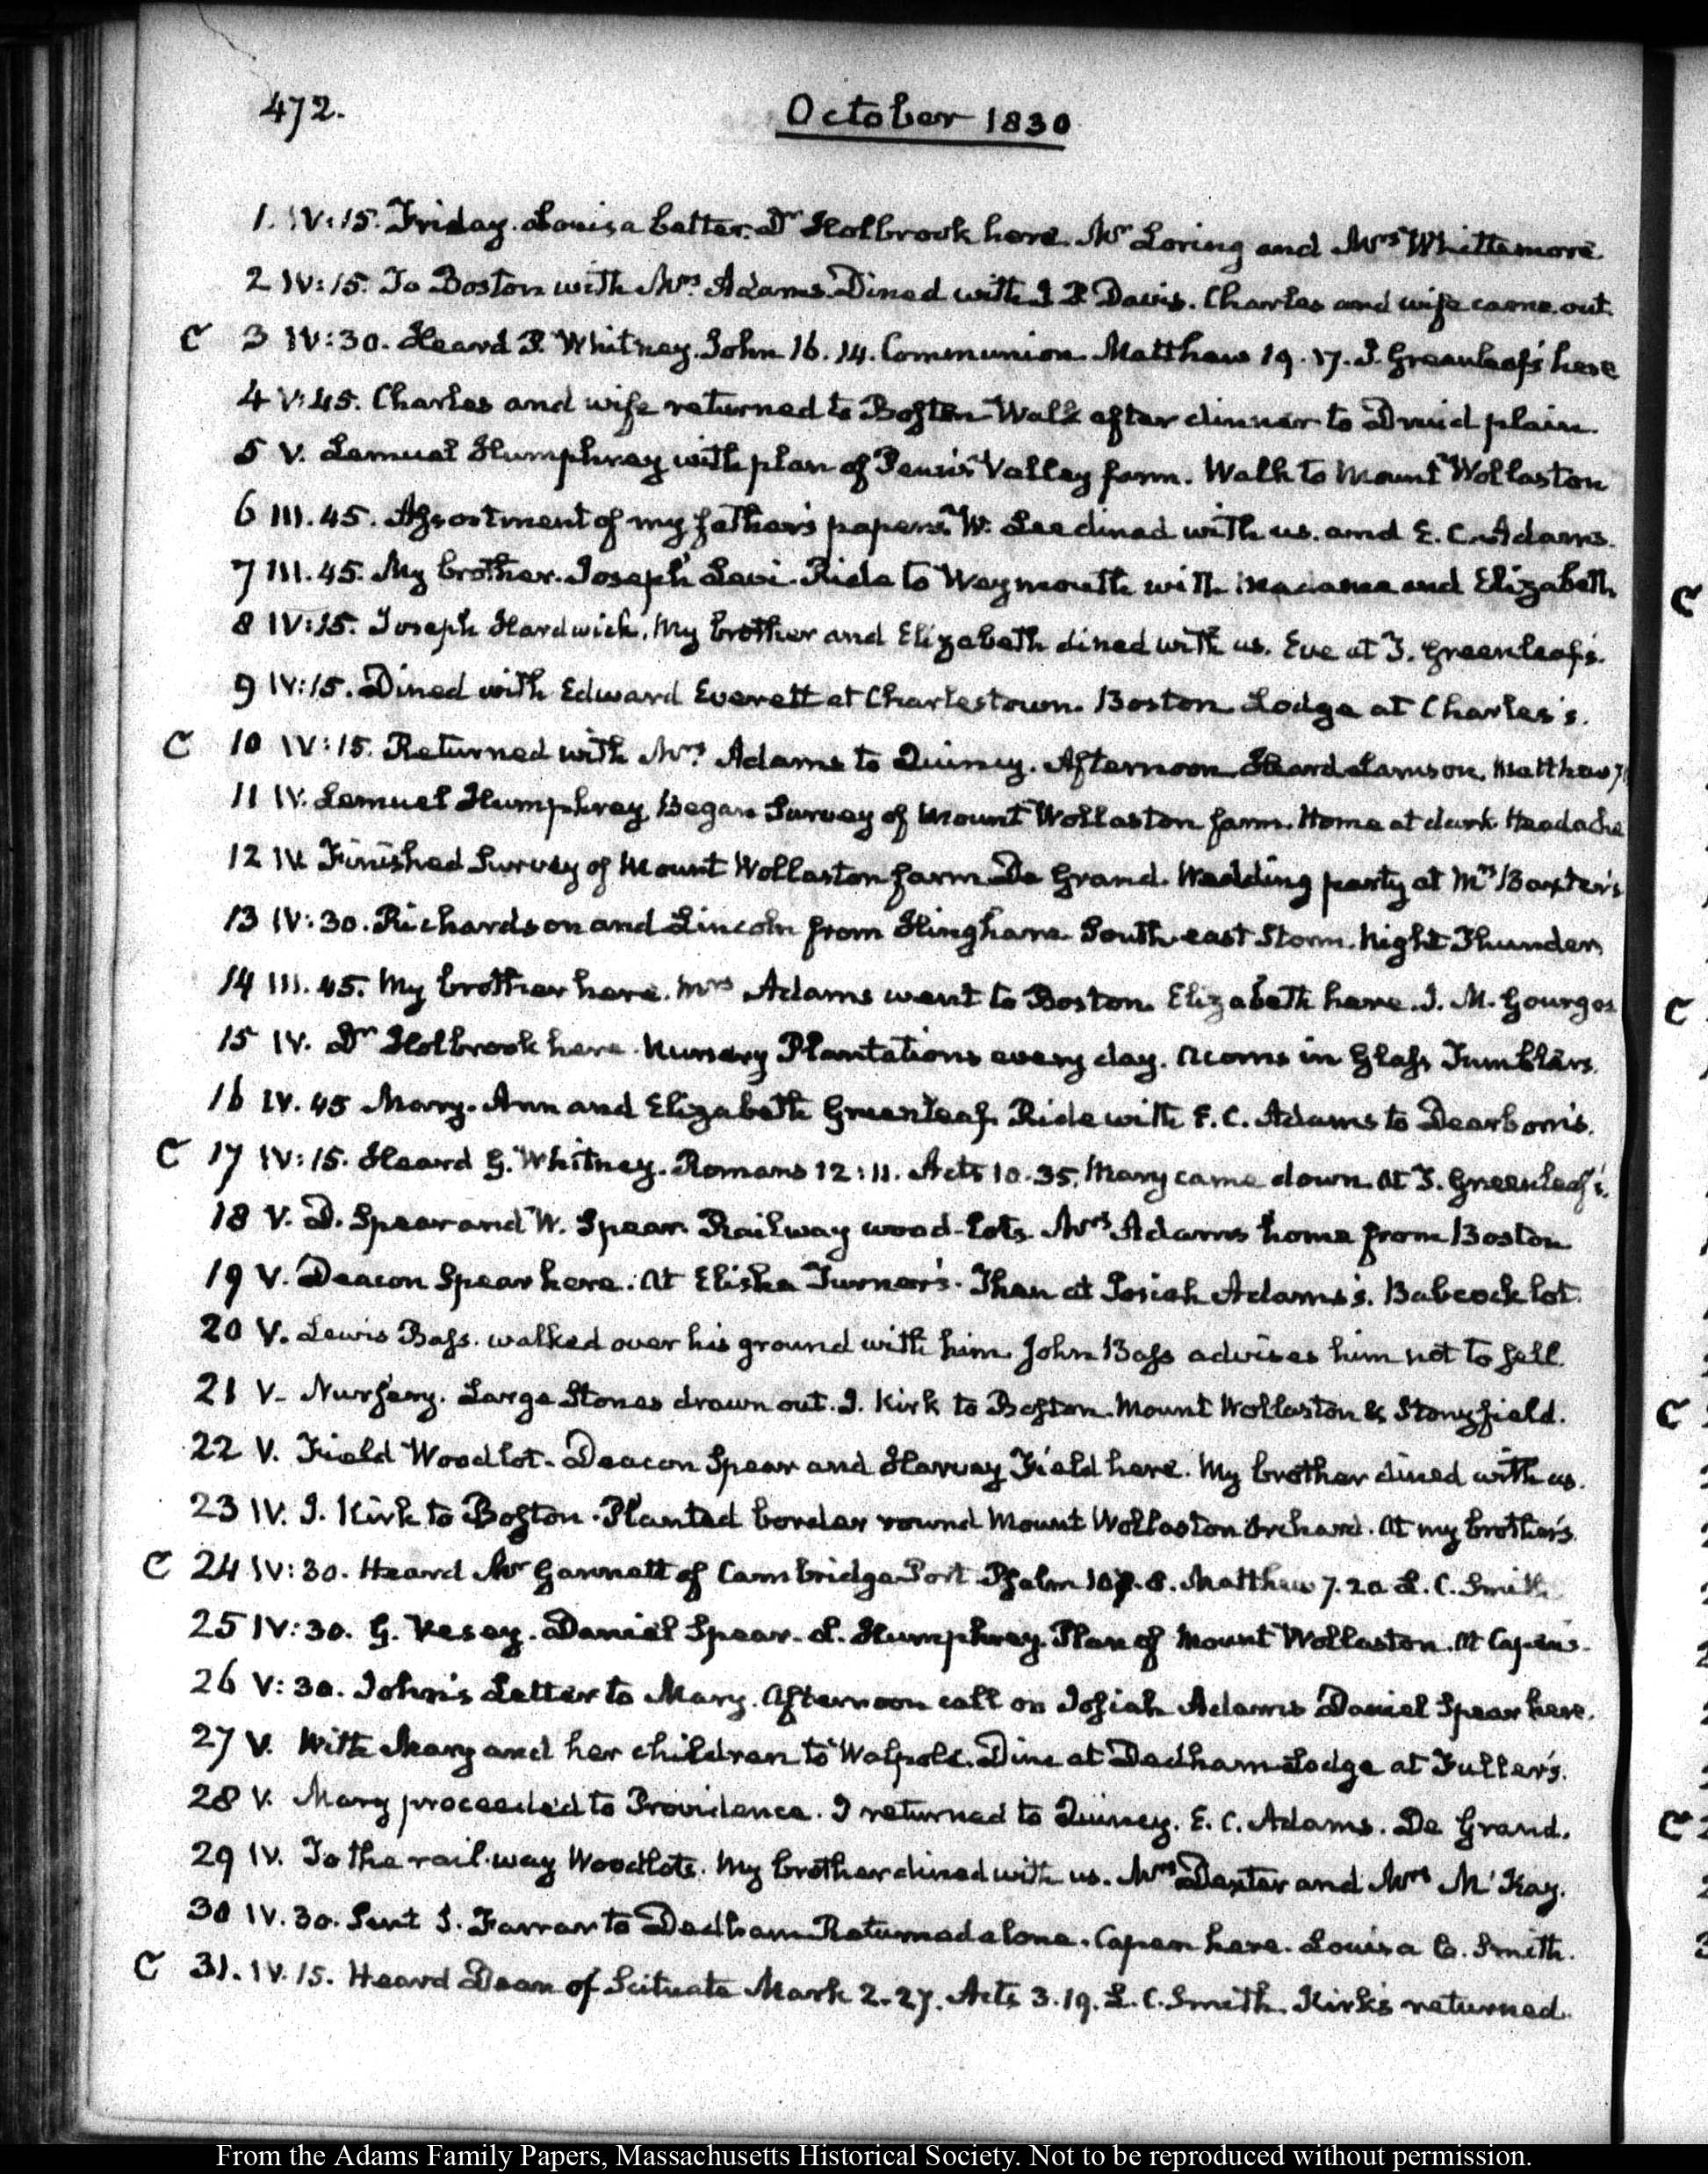 472.
October 1830
1. IV:15. Friday. Louisa better. Dr Holbrook here. Mr Loring and Mrs Whittemore.
2 IV:15. To Boston with Mrs. Adams. Dined with I. P. Davis. Charles and wife came out.
C 3 IV:30. Heard P. Whitney. John 16. 14. Communion. Matthew 19. 17. T. Greenleaf's here
4 V:45. Charles and wife returned to Boston. Walk after dinner to Druid plain.
5 V. Lemuel Humphrey with plan of Penn's Valley farm. Walk to Mount Wollaston
6 III. 45. Assortment of my father's papers. W. Lee dined with us. and E. C. Adams.
7 III. 45. My brother. Joseph Lavi. Ride to Weymouth with Madame and Elizabeth
8 IV:15. Joseph Hardwick. My brother and Elizabeth dined with us. Eve at T. Greenleaf's.
9 IV:15. Dined with Edward Everett at Charlestown. Boston. Lodge at Charles's.
C 10 IV:15. Returned with Mrs. Adams to Quincy. Afternoon Heard Lamson. Matthew 7
11 IV. Lemuel Humphrey. Began Survey of Mount Wollaston farm. Home at dark. Headache
12 IV. Finished Survey of Mount Wollaston farm. De Grand. Wedding party at Mrs Baxter's
13 IV:30. Richardson and Lincoln from Hingham. South east Storm. Night Thunder
14 III. 45. My brother here. Mrs Adams went to Boston. Elizabeth here. I. M. Gourgas
15 IV. Dr Holbrook here. Nursery Plantations every day. Acorns in Glass Tumblers.
16 IV. 45 Mary. Ann and Elizabeth Greenleaf. Ride with E. C. Adams to Dearborn's.
C 17 IV:15. Heard G. Whitney. Romans 12:11. Acts 10. 35. Mary came down. At T. Greenleaf's.
18 V. D. Spear and W. Spear. Railway wood-lots. Mrs Adams home from Boston
19 V. Deacon Spear here. At Elisha Turner's. Then at Josiah Adams's. Babcock lot.
20 V. Lewis Bass. walked over his ground with him. John Bass advises him not to sell.
21 V. Nursery. Large Stones drawn out. J. Kirk to Boston. Mount Wollaston & Stonyfield.
22 V. Field Woodlot. Deacon Spear and Harvey Field here. My brother dined with us.
23 IV. J. Kirk to Boston. Planted border round Mount Wollaston Orchard. At my brother's.
C 24 IV:30. Heard Mr Gannett of Cambridge Port. Psalm 107. 8. Matthew 7. 20. L. C. Smith
25 IV:30. G. Vesey. Daniel Spear. L. Humphrey. Plan of Mount Wollaston. At Capen's.
26 V:30. John's Letter to Mary. Afternoon call on Josiah Adams. Daniel Spear here.
27 V. With Mary and her children to Walpole. Dine at Dedham. Lodge at Fuller's.
28 V. Mary proceeded to Providence. I returned to Quincy. E. C. Adams. De Grand.
29 IV. To the rail-way Woodlots. My brother dined with us. Mrs Dexter and Mrs McKay.
30 IV. 30. Sent J. Farrar to Dedham. Returned alone. Capen here. Louisa C. Smith.
C 31. IV. 15. Heard Dean of Scituate Mark 2. 27. Acts 3. 19. L. C. Smith. Kirk's returned.
From the Adams Family Papers, Massachusetts Historical Society. Not to be reproduced without permission.